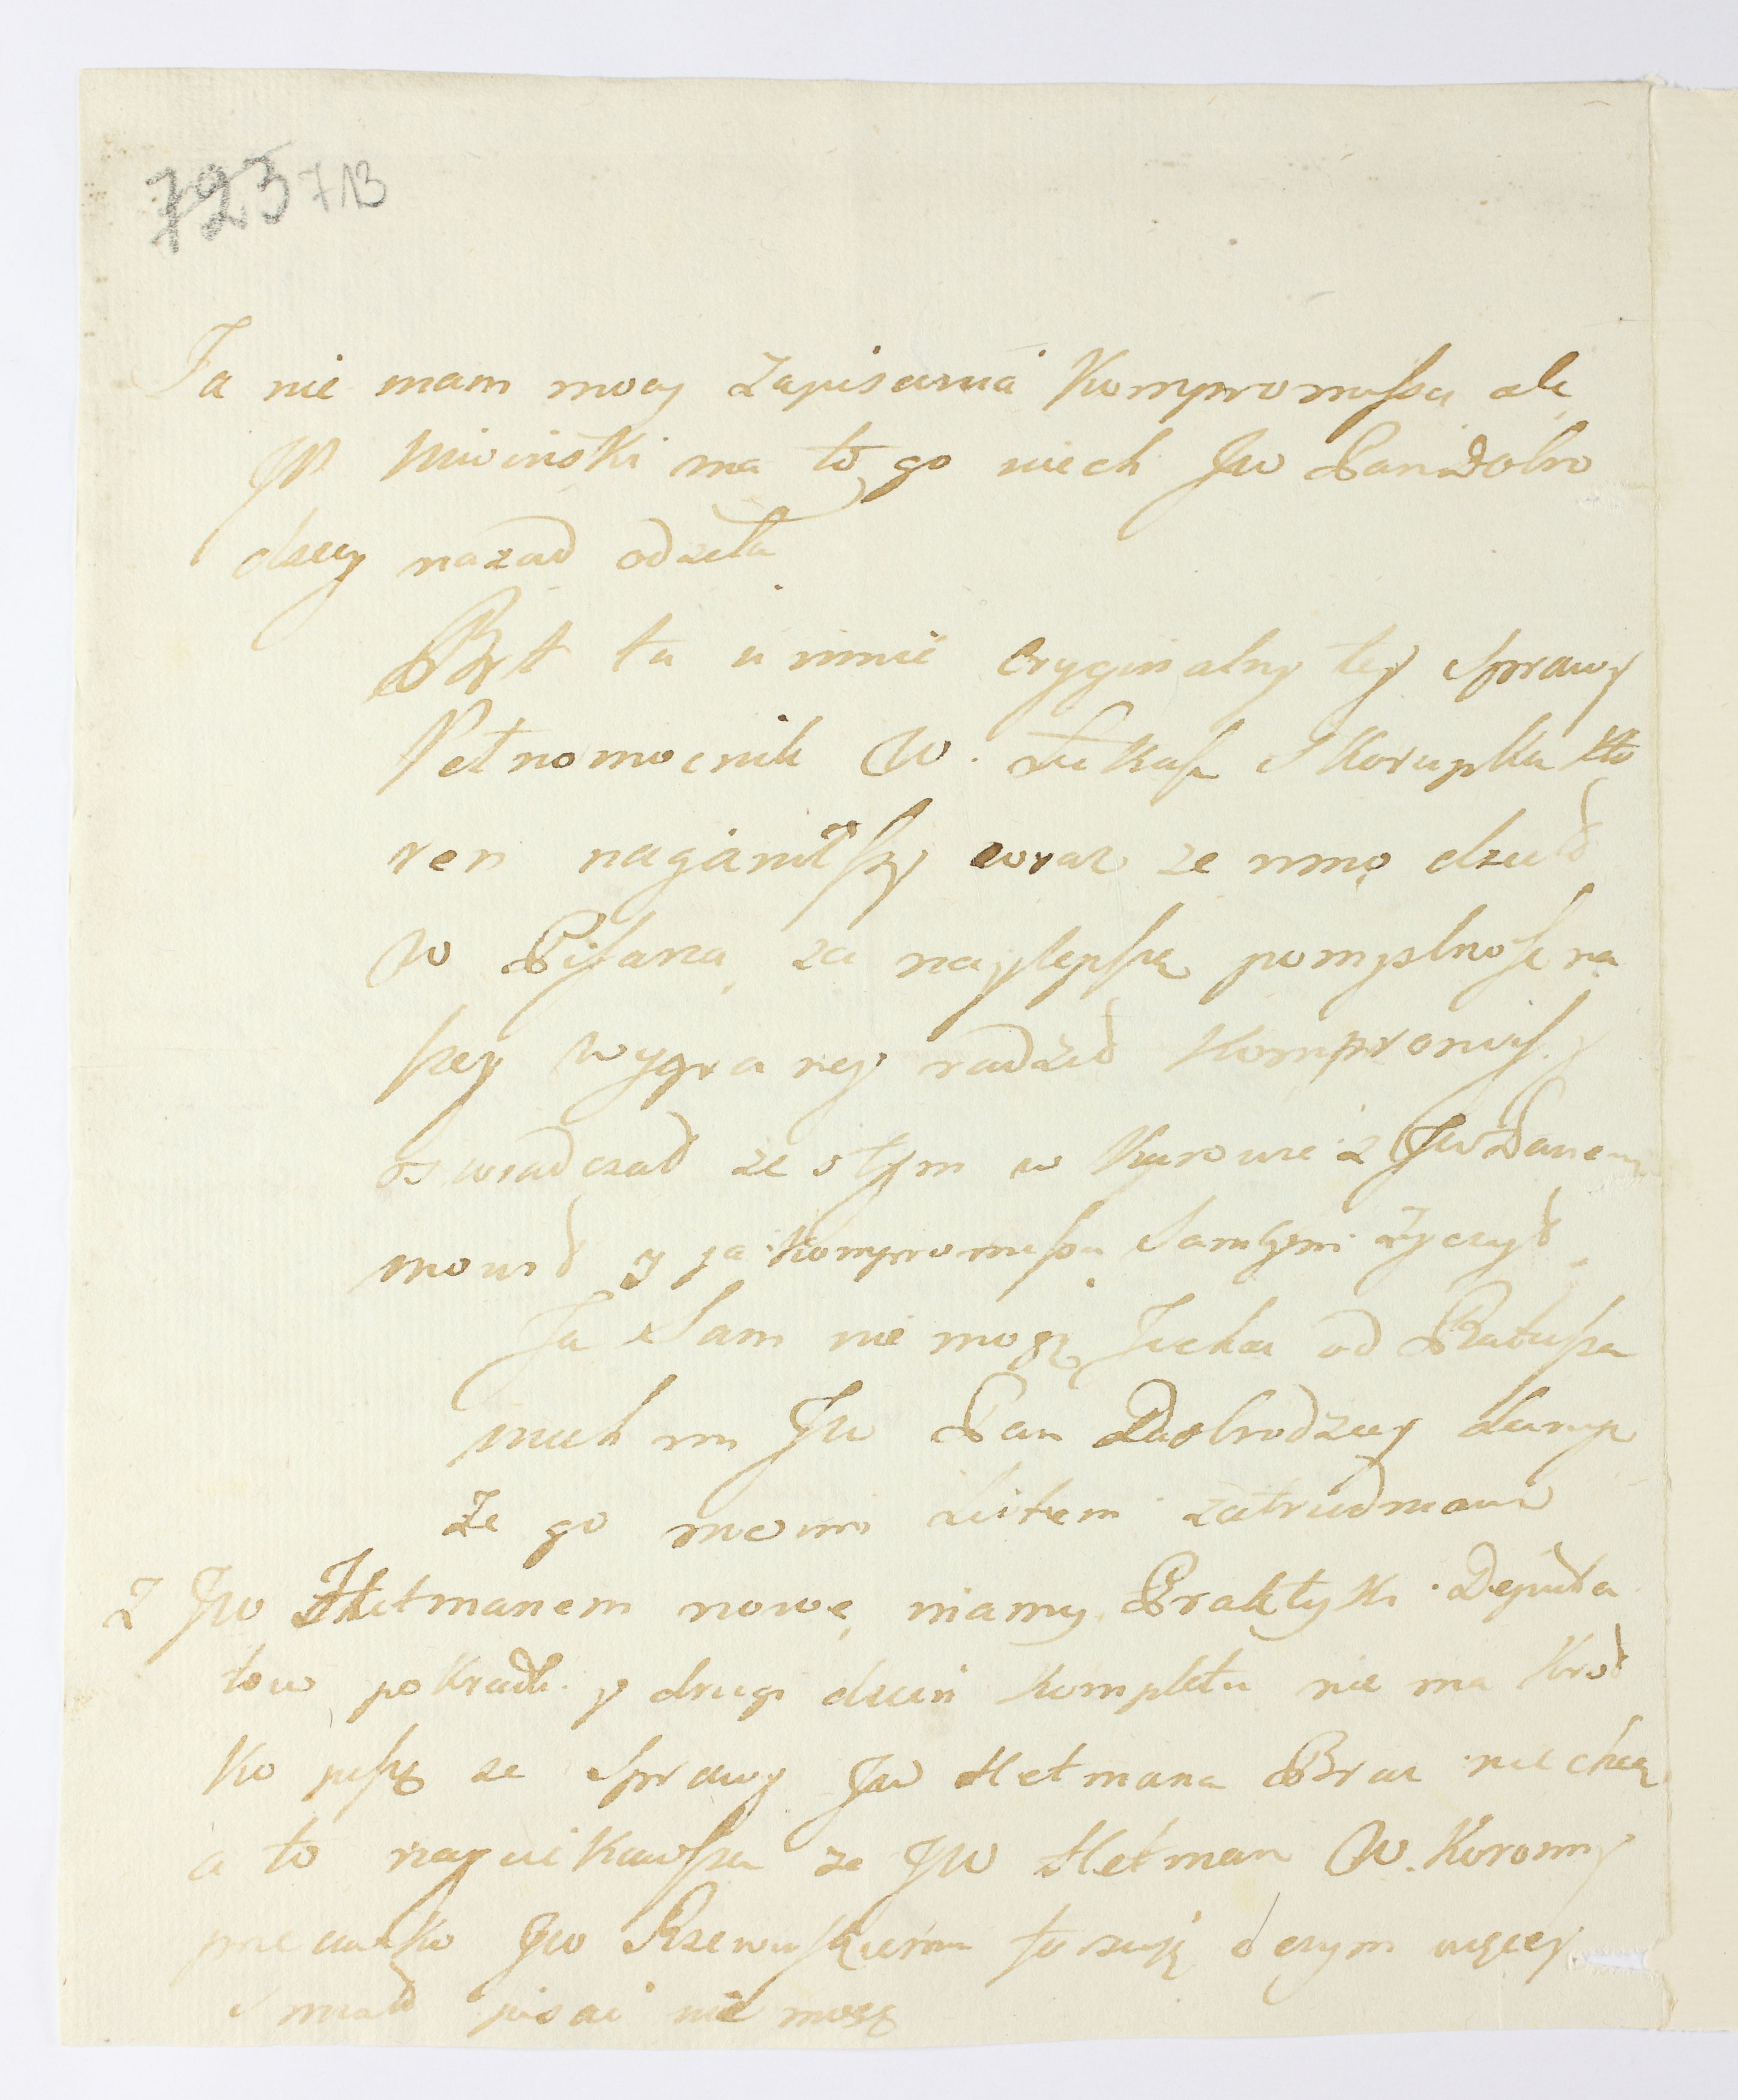 723 713
Ja nie mam mocy Zapisania Kompromissu ale
JP Miwinski ma to go niech JW Pan Dobro
dziey nazad odzela
Był tu u mnie Oryginalny tey Sprawy
Pełnomocnik W. Łukasz Skorupka kto
ren naganiłszy wraz ze mną
W Pisana, za naylepszą pomyslnosc na
szey wygraney radził Kompromis y
oswiadczał ze o tym w Kurowie z JW Panem
mowił y ja Kompromissu Samym Zyczył
Ja Sam nie mogę Jechac od Ratusza
niech mi JW Pan Dobrodziey daruje
Ze go moim listem zatrudniam
Z JW Hetmanem nowe mamy Praktyki Deputa
tow pokradli y drugi dzien Kompletu nie ma Krot
ko piszę ze Sprawy JW Hetmana Brac nie chcą
a to nayciekawsza ze JW Hetman W. Koronny
przeciwko JW Rzewuskiemu forsuję o czym więcej
pisac nie mogę